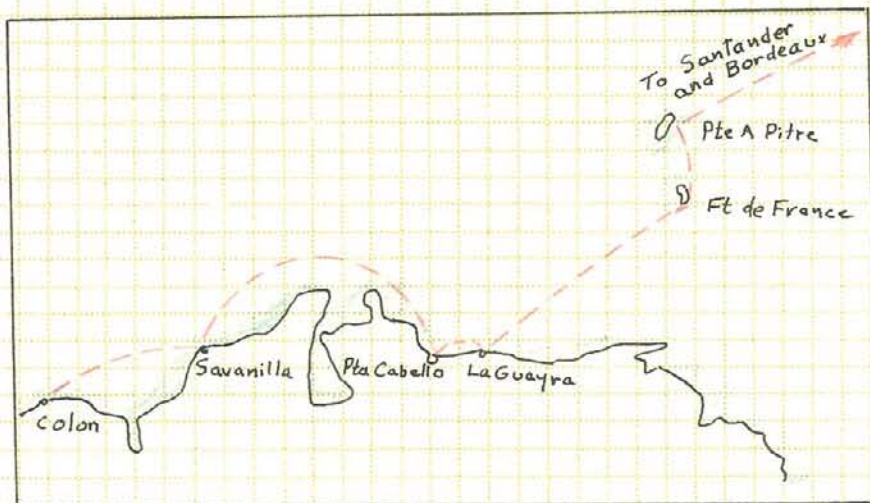 To Santander
and Bordeaux
Pte A Pitre
Ft de France
Savanilla
Pta Cabello
La Guayra
Colon